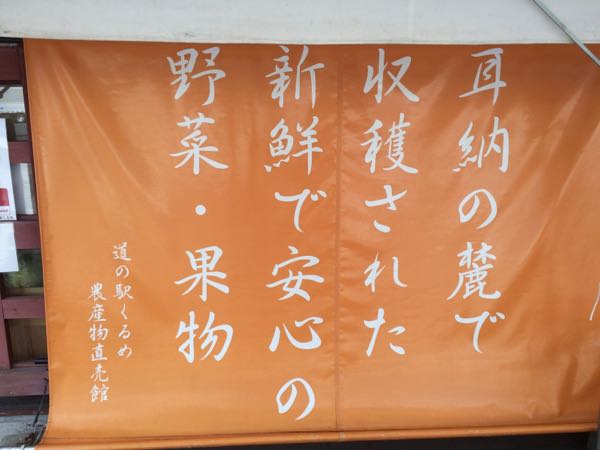 耳納の麓で
収穫された
新鮮で安心の
野菜・果物
道の駅くるめ
農産物直売館